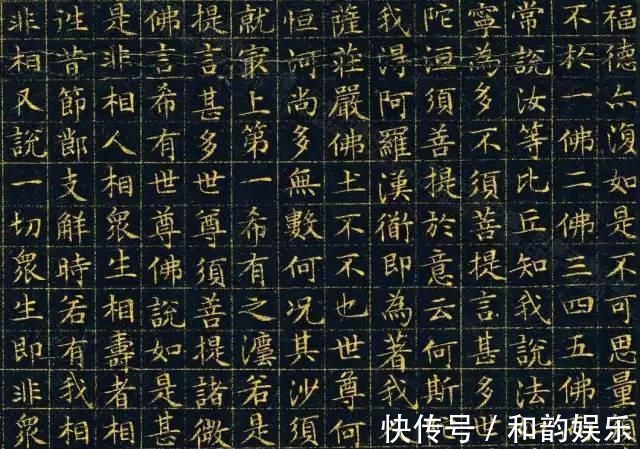 福德亦復如是不可思量
不於一佛二佛三四五佛
常說汝等比丘知我說法
寧為多不須菩提言甚多世
陀洹須菩提於意云何斯
我淂阿羅漢衜即為著我
薩莊嚴佛土不不也世尊何
恒河尚多無數何況其沙須
就冣上第一希有之灋若是
提言甚多世尊須菩提諸微
佛言希有世尊佛說如是甚
是非相人相眾生相壽者相
往昔節節支解時若有我相
非相又說一切眾生即非眾
快传号/和韵娱乐